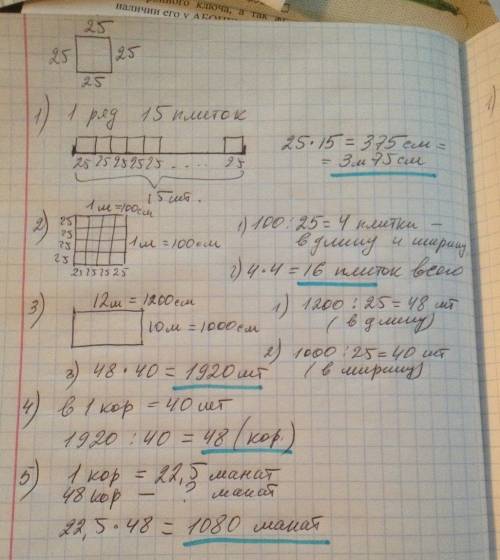 ронного ключа, а так же
наличии его у АБОН
25
25 25
25
1) 1 ряд 15 плиток
25 25 25 25 25 . . . . . 25
15 шт.
25 · 15 = 375 см =
= 3 м 75 см
2) 1 м = 100 см
25
25
25
25
1 м = 100 см
25 25 25 25
1) 100 : 25 = 4 плитки –
в длину и ширину
2) 4 · 4 = 16 плиток всего
3) 12 м = 1200 см
10 м = 1000 см
1) 1200 : 25 = 48 шт
(в длину)
2) 1000 : 25 = 40 шт
(в ширину)
3) 48 · 40 = 1920 шт
4) в 1 кор = 40 шт
1920 : 40 = 48 (кор.)
5) 1 кор = 22,5 манат
48 кор – ? манат
22,5 · 48 = 1080 манат
1)